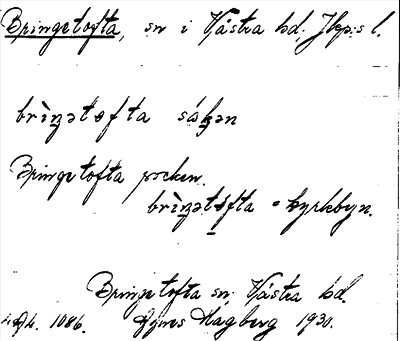 Bringetofta, sn i Västra hd, Jkp:s l.
brìŋətofta sókən
Bringetofta socken.
brìŋətofta = kyrkbyn.
Bringetofta sn, Västra hd.
1086. Agnes Hagberg 1930.